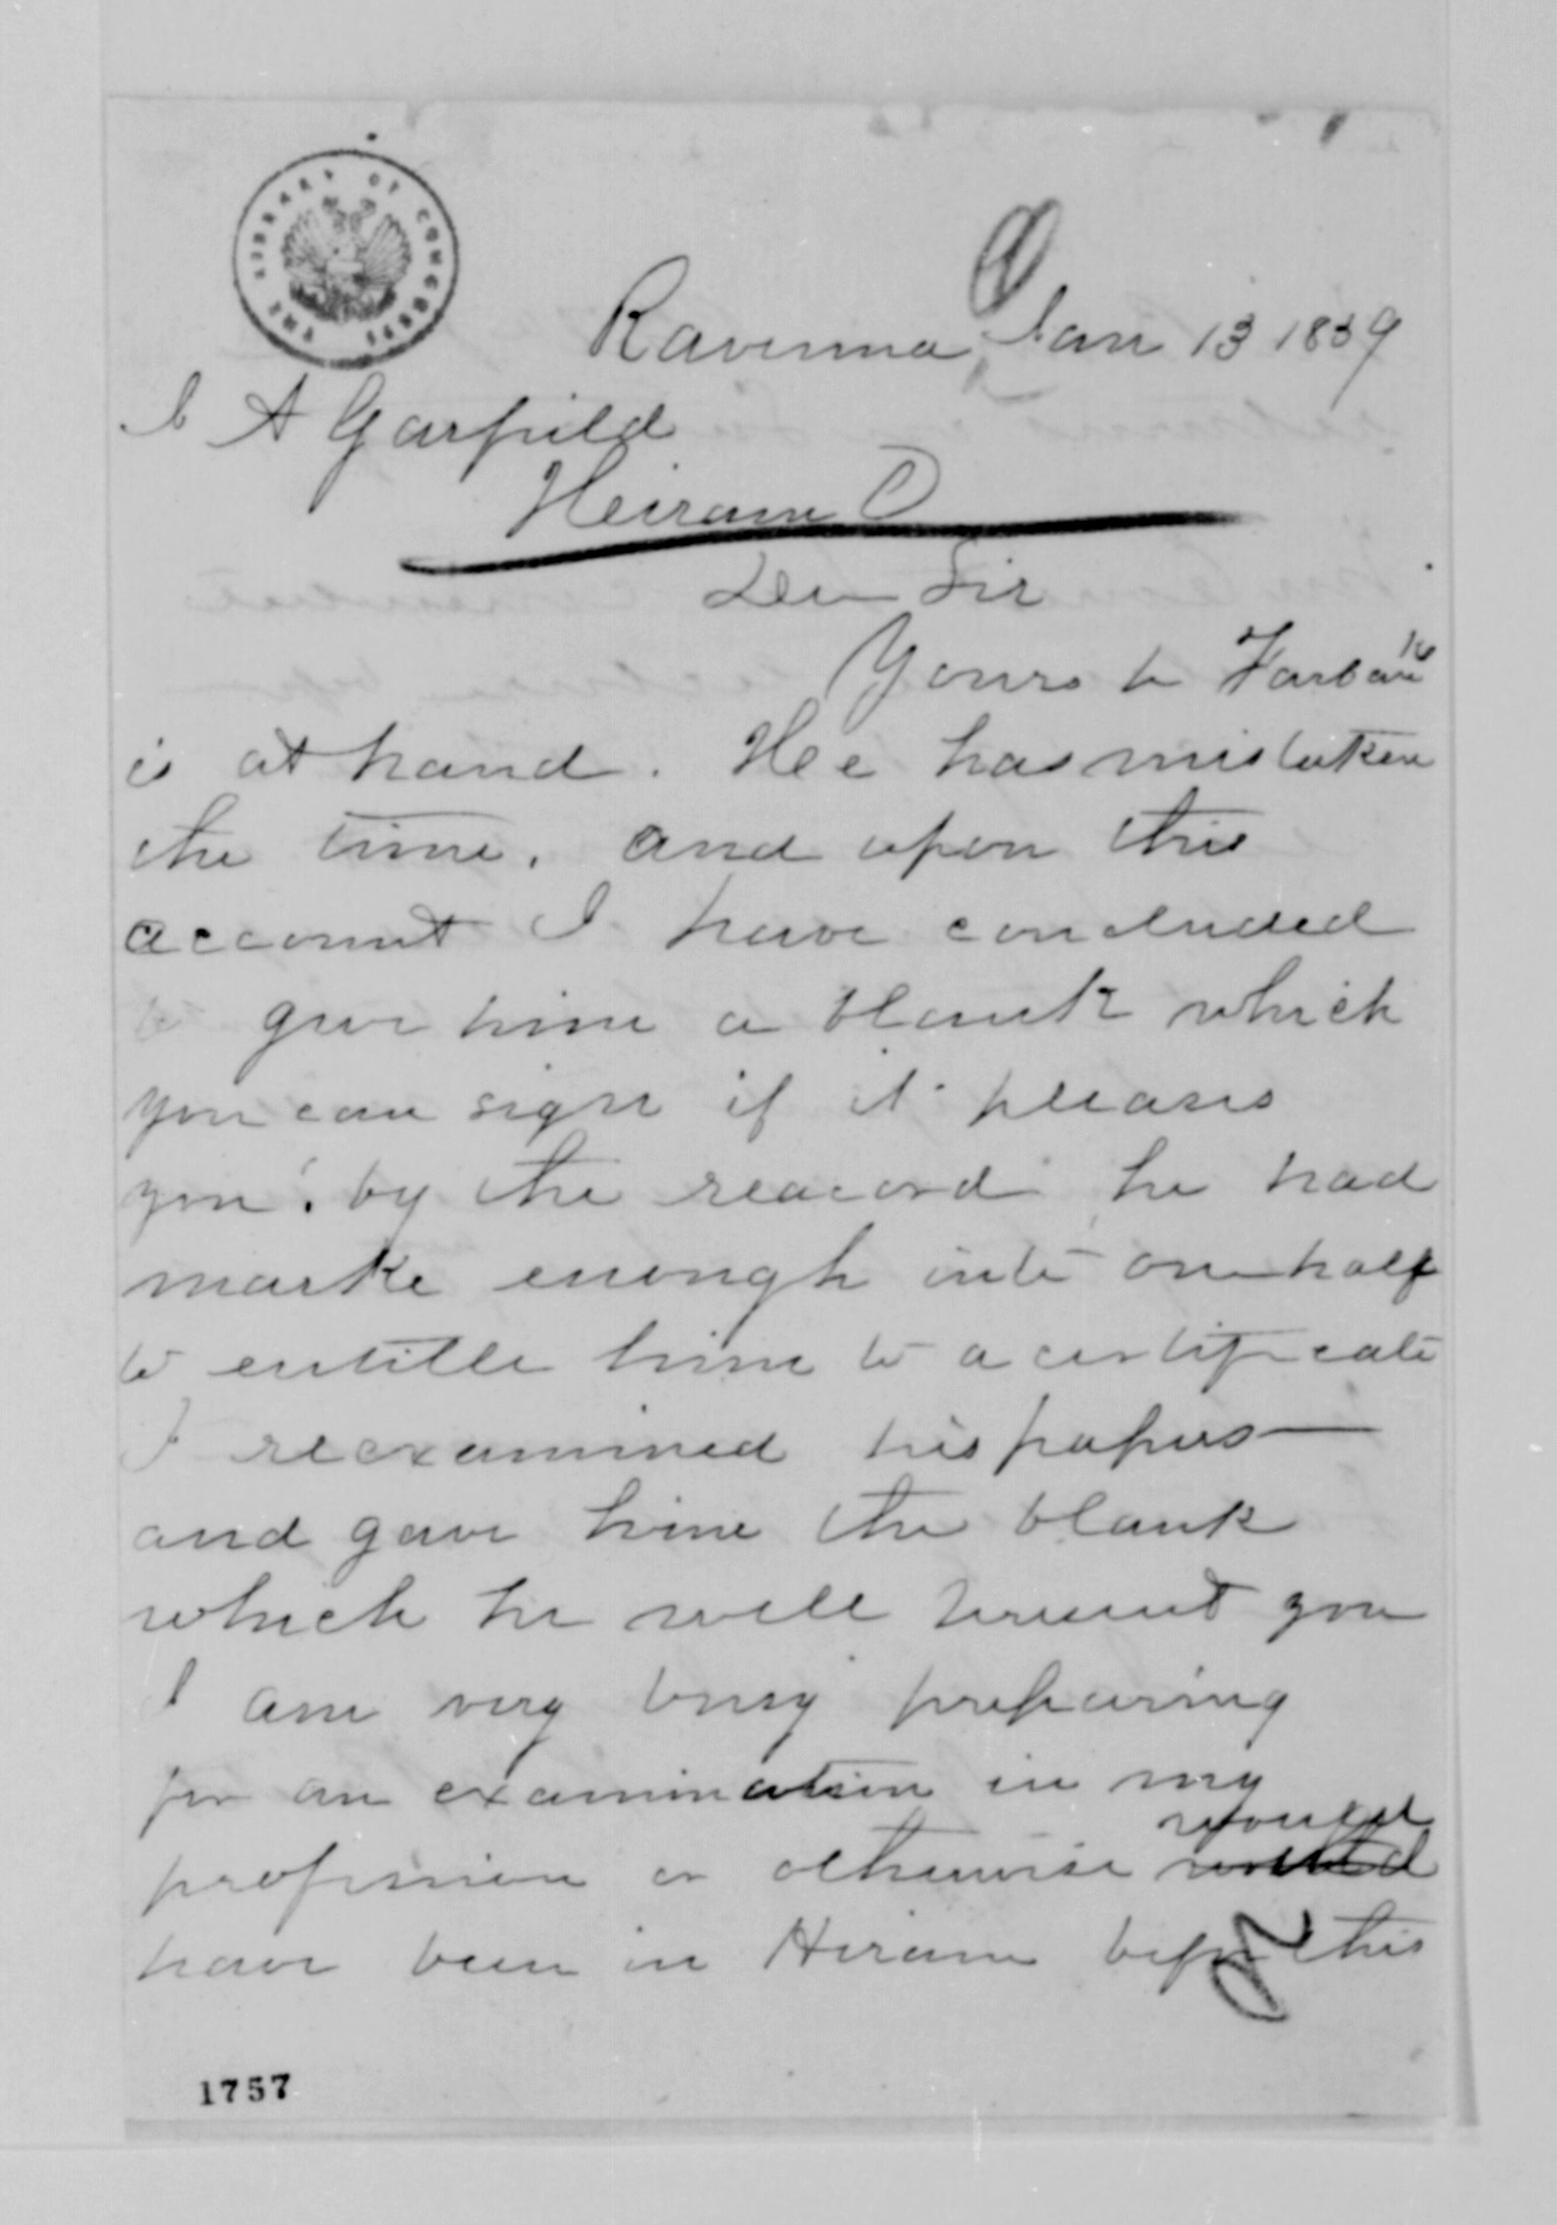 THE LIBRARY OF CONGRESS
Ravenna Jan 13 1859
J A Garfield
Heiram O
Dear Sir
Yours to
is at hand. He e has mistaken
the time. and upon this
account I have concluded
to give him a blank which
you can sign if it pleases
you. by the reacord he had
marke enough into one half
to entille him to a certificate
I reexamined his papers—
and gave him the blank
which he will you
I am very busy preparing
for an examination in my
profession or otherwise would
have been in Hiram before this
1757